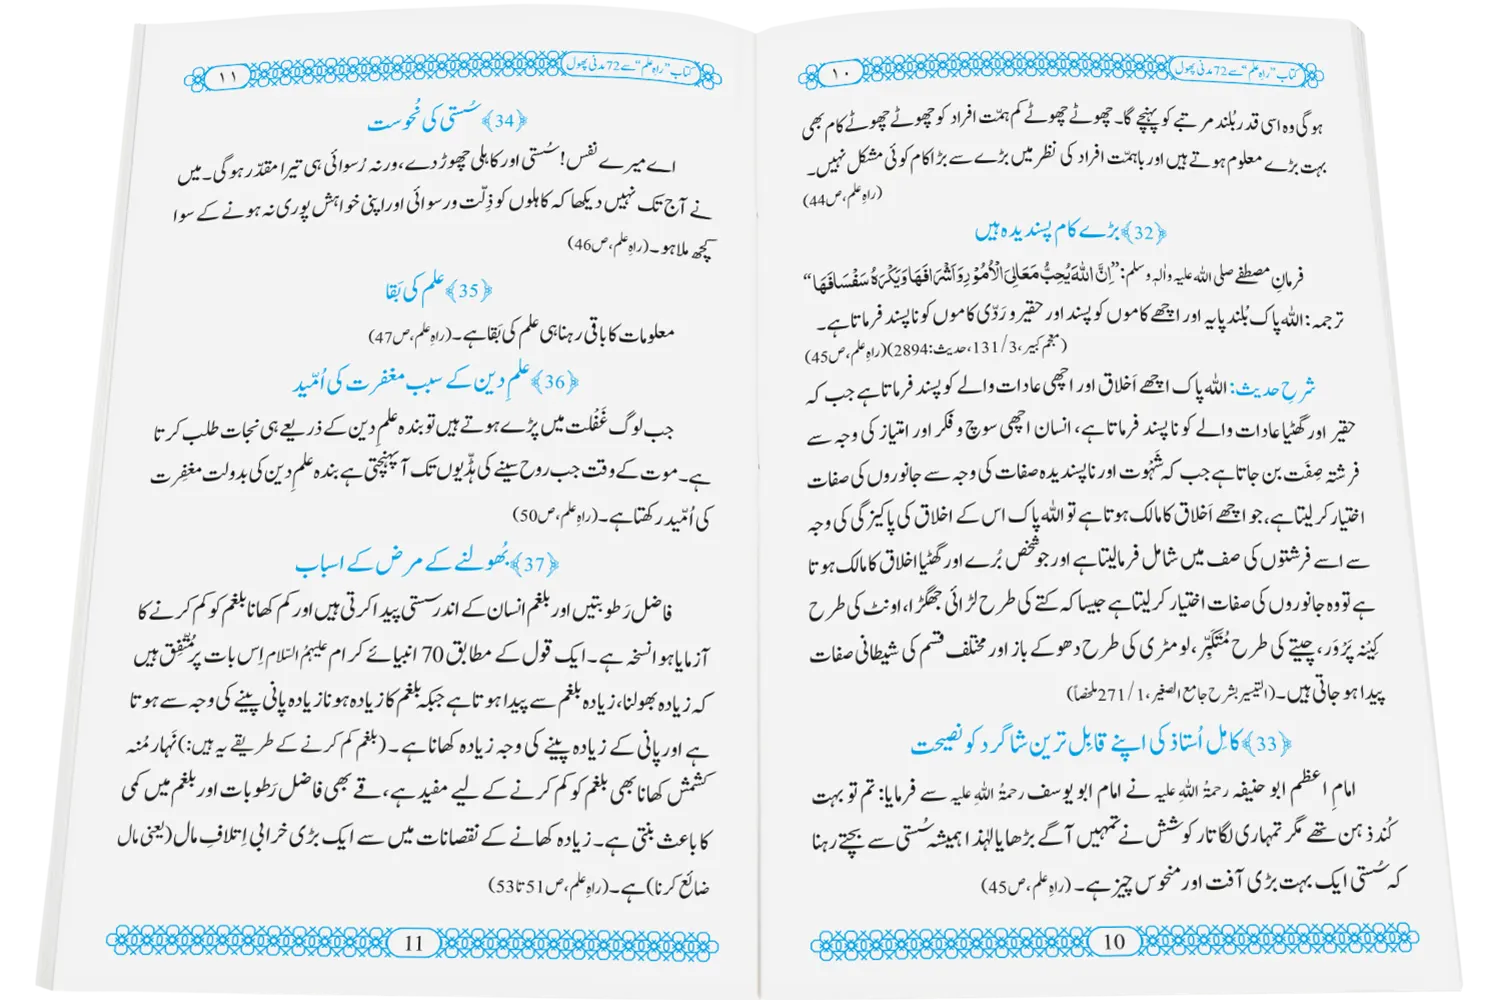 کتاب ”راہِ علم“ سے 72 مدنی پھول
۱۰
ہوگی وہ اسی قدر بُلند مرتبے کو پہنچے گا۔ چھوٹے چھوٹے کم ہمّت افراد کو چھوٹے چھوٹے کام بھی
بہت بڑے معلوم ہوتے ہیں اور باہمّت افراد کی نظر میں بڑے سے بڑا کام کوئی مشکل نہیں۔
(راہِ علم، ص44)
﴿32﴾ بڑے کام پسندیدہ ہیں
فرمانِ مصطفٰے صلی اللہ علیہ واٰلہٖ وسلم: ”اِنَّ اللّٰہَ یُحِبُّ مَعَالِیَ الْاُمُوْرِ وَاَشْرَافَھَا وَیَکْرَہُ سَفْسَافَھَا“
ترجمہ: اللہ پاک بُلند پایہ اور اچھے کاموں کو پسند اور حقیر و رَدّی کاموں کو ناپسند فرماتا ہے۔
(معجم کبیر، 3/131، حدیث: 2894) (راہِ علم، ص45)
شرحِ حدیث: اللہ پاک اچھے اَخلاق اور اچھی عادات والے کو پسند فرماتا ہے جب کہ
حقیر اور گھٹیا عادات والے کو ناپسند فرماتا ہے، انسان اچھی سوچ و فکر اور امتیاز کی وجہ سے
فرشتہ صِفَت بن جاتا ہے جب کہ شَہْوت اور ناپسندیدہ صفات کی وجہ سے جانوروں کی صفات
اختیار کر لیتا ہے، جو اچھے اَخلاق کا مالک ہوتا ہے تو اللہ پاک اس کے اخلاق کی پاکیزگی کی وجہ
سے اسے فرشتوں کی صف میں شامل فرما لیتا ہے اور جو شخص بُرے اور گھٹیا اخلاق کا مالک ہوتا
ہے تو وہ جانوروں کی صفات اختیار کر لیتا ہے جیسا کہ کتے کی طرح لڑائی جھگڑا، اونٹ کی طرح
کِیْنہ پرْوَر، چیتے کی طرح مُتَکَبِّر، لومڑی کی طرح دھوکے باز اور مختلف قسم کی شیطانی صفات
پیدا ہو جاتی ہیں۔ (التیسیر بشرح جامع الصغیر، 1/271 ملخصاً)
﴿33﴾ کامِل اُستاذ کی اپنے قابِل ترین شاگرد کو نصیحت
امامِ اعظم ابو حنیفہ رحمۃُ اللہِ علیہ نے امام ابو یوسف رحمۃُ اللہِ علیہ سے فرمایا: تم تو بہت
کُند ذہن تھے مگر تمہاری لگاتار کوشش نے تمہیں آگے بڑھایا لہٰذا ہمیشہ سُستی سے بچتے رہنا
کہ سُستی ایک بہت بڑی آفت اور منحوس چیز ہے۔ (راہِ علم، ص45)
10
کتاب ”راہِ علم“ سے 72 مدنی پھول
۱۱
﴿34﴾ سُستی کی نُحوست
اے میرے نفس! سُستی اور کاہلی چھوڑ دے، ورنہ رُسوائی ہی تیرا مقدّر ہوگی۔ میں
نے آج تک نہیں دیکھا کہ کاہلوں کو ذِلّت و رسوائی اور اپنی خواہش پوری نہ ہونے کے سوا
کچھ ملا ہو۔ (راہِ علم، ص46)
﴿35﴾ علم کی بَقا
معلومات کا باقی رہنا ہی علم کی بَقا ہے۔ (راہِ علم، ص47)
﴿36﴾ علمِ دین کے سبب مغفرت کی اُمّید
جب لوگ غَفْلت میں پڑے ہوتے ہیں تو بندہ علمِ دین کے ذریعے ہی نجات طلب کرتا
ہے۔ موت کے وقت جب روح سینے کی ہڈّیوں تک آ پہنچتی ہے بندہ علمِ دین کی بدولت مغفِرت
کی اُمّید رکھتا ہے۔ (راہِ علم، ص50)
﴿37﴾ بُھولنے کے مرض کے اسباب
فاضل رَطوبتیں اور بلغم انسان کے اندر سستی پیدا کرتی ہیں اور کم کھانا بلغم کو کم کرنے کا
آزمایا ہوا نسخہ ہے۔ ایک قول کے مطابق 70 انبیائے کرام علیہمُ السّلام اِس بات پر مُتَّفِق ہیں
کہ زیادہ بھولنا، زیادہ بلغم سے پیدا ہوتا ہے جبکہ بلغم کا زیادہ ہونا زیادہ پانی پینے کی وجہ سے ہوتا
ہے اور پانی کے زیادہ پینے کی وجہ زیادہ کھانا ہے۔ (بلغم کم کرنے کے طریقے یہ ہیں:) نَہار مُنہ
کشمش کھانا بھی بلغم کو کم کرنے کے لیے مفید ہے، قے بھی فاضل رَطوبات اور بلغم میں کمی
کا باعث بنتی ہے۔ زیادہ کھانے کے نقصانات میں سے ایک بڑی خرابی اِتلافِ مال (یعنی مال
ضائع کرنا) ہے۔ (راہِ علم، ص51 تا 53)
11